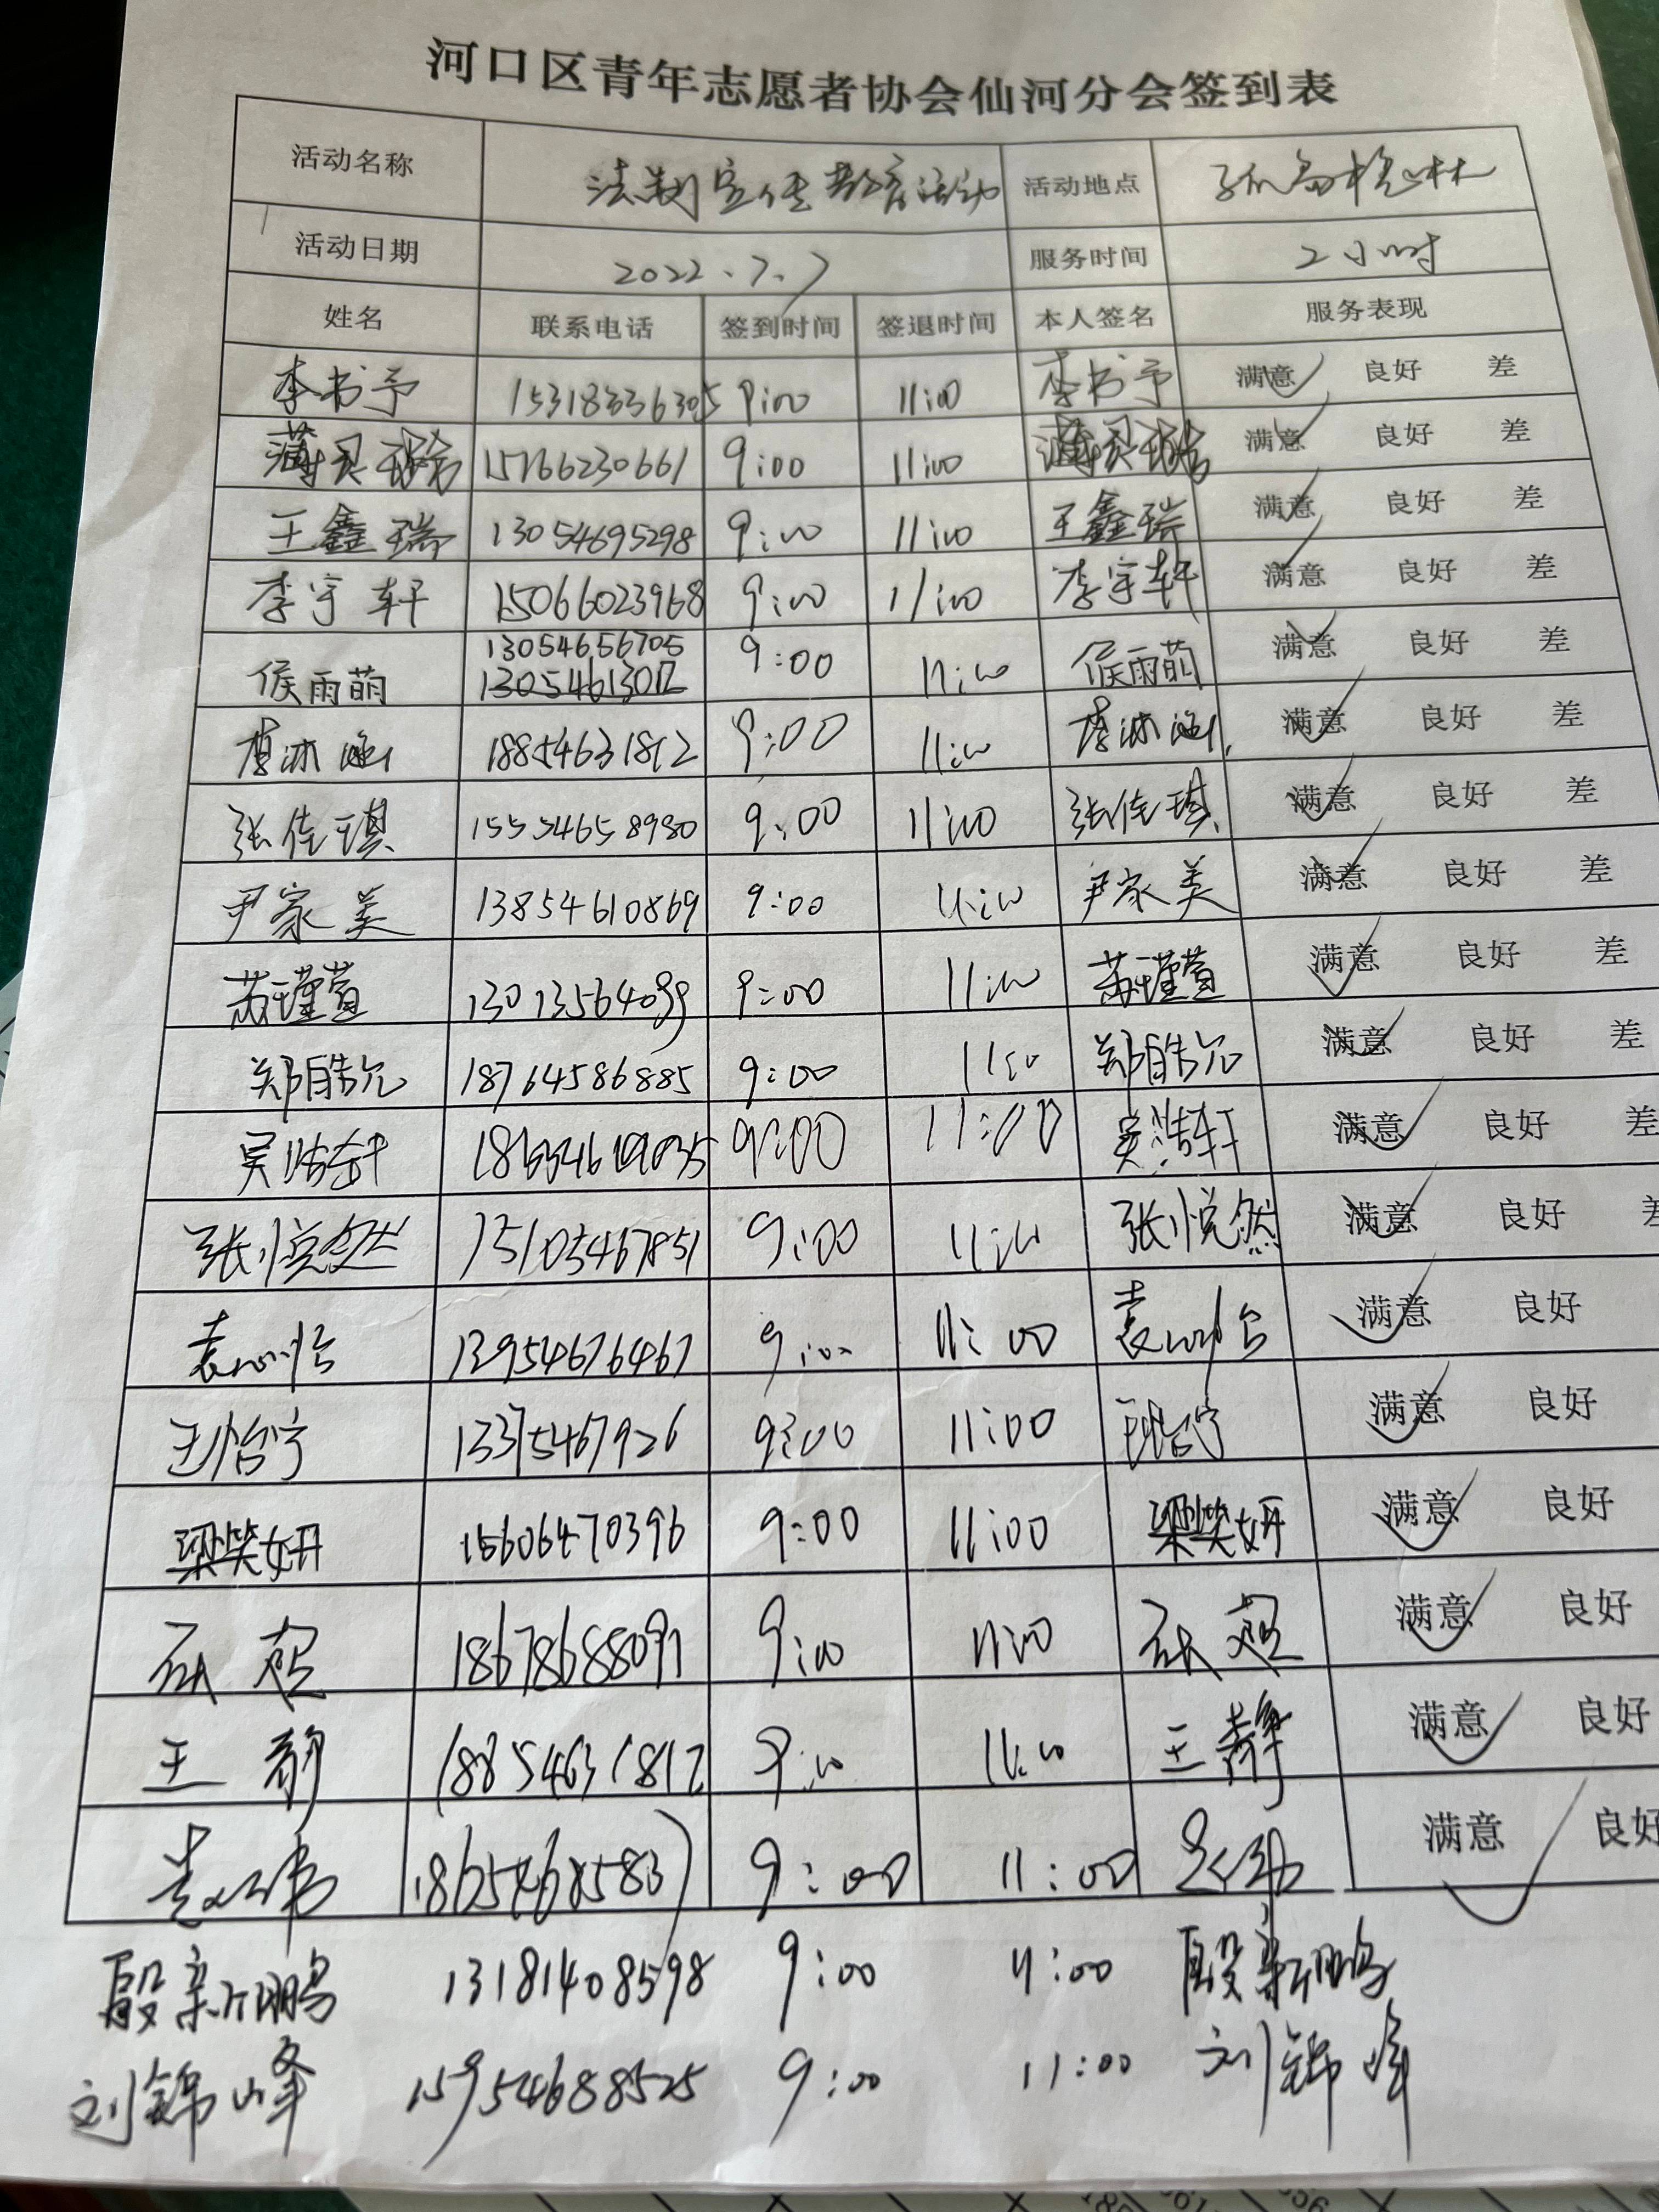 河口区青年志愿者协会仙河分会签到表
活动名称 法制宣传教育活动 活动地点 孤岛槐林
活动日期 2022、7.7 服务时间 2小时
姓名 联系电话 签到时间 签退时间 本人签名 服务表现
李书予 9:00 11:00 李书予 满意 良好 差
15766230661 9:00 11:00 满意 良好 差
王鑫瑞 13054695298 9:00 11:00 王鑫瑞 满意 良好 差
李宇轩 15066023968 9:00 11:00 李宇轩 满意 良好 差
13054656705
侯雨萌 9:00 11:00 侯雨萌 满意 良好 差
18854631812 9:00 11:00 满意 良好 差
张佳琪 15554658980 9:00 11:00 张佳琪 满意 良好 差
尹家美 13854610869 9:00 11:00 尹家美 满意 良好 差
苏瑾萱 13013564099 9:00 11:00 苏瑾萱 满意 良好 差
郑皓允 18764586885 9:00 郑皓允 满意 良好 差
吴浩轩 9:00 11:00 吴浩轩 满意 良好 差
张悦然 15105467851 9:00 11:00 张悦然 满意 良好 差
袁心怡 13954676467 9:00 11:00 袁心怡 满意 良好
王怡宁 13375467926 9:00 11:00 王怡宁 满意 良好
梁笑妍 15606470396 9:00 11:00 梁笑妍 满意 良好
18678688091 9:00 11:00 满意 良好
王静 18854631812 9:00 11:00 王静 满意 良好
9:00 11:00 满意 良好
殷新鹏 13181408598 9:00 11:00 殷新鹏
刘锦峰 15954688525 9:00 11:00 刘锦峰